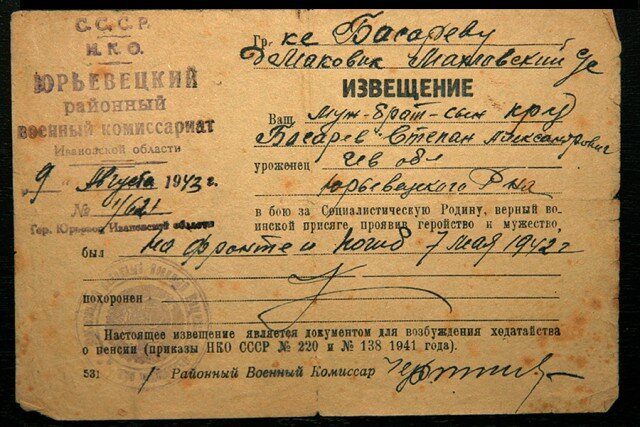 С.С.С.Р.
Н.К.О.
ЮРЬЕВЕЦКИЙ
районный
военный комиссариат
Ивановской области
„9„ Августа 1943 г.
№ 1/621
Гор. Юрьевец Ивановской области
Гр. ке Басареву
ИЗВЕЩЕНИЕ
Ваш муж-брат-сын кр
Басарев Степан Александрович
уроженец обл
Юрьевецкого р на
в бою за Социалистическую Родину, верный во-
инской присяге, проявив геройство и мужество,
был на фронте и погиб 7 мая 1942 г
похоронен
Настоящее извещение является документом для возбуждения ходатайства
о пенсии (приказы НКО СССР № 220 и № 138 1941 года).
531 Районный Военный Комиссар